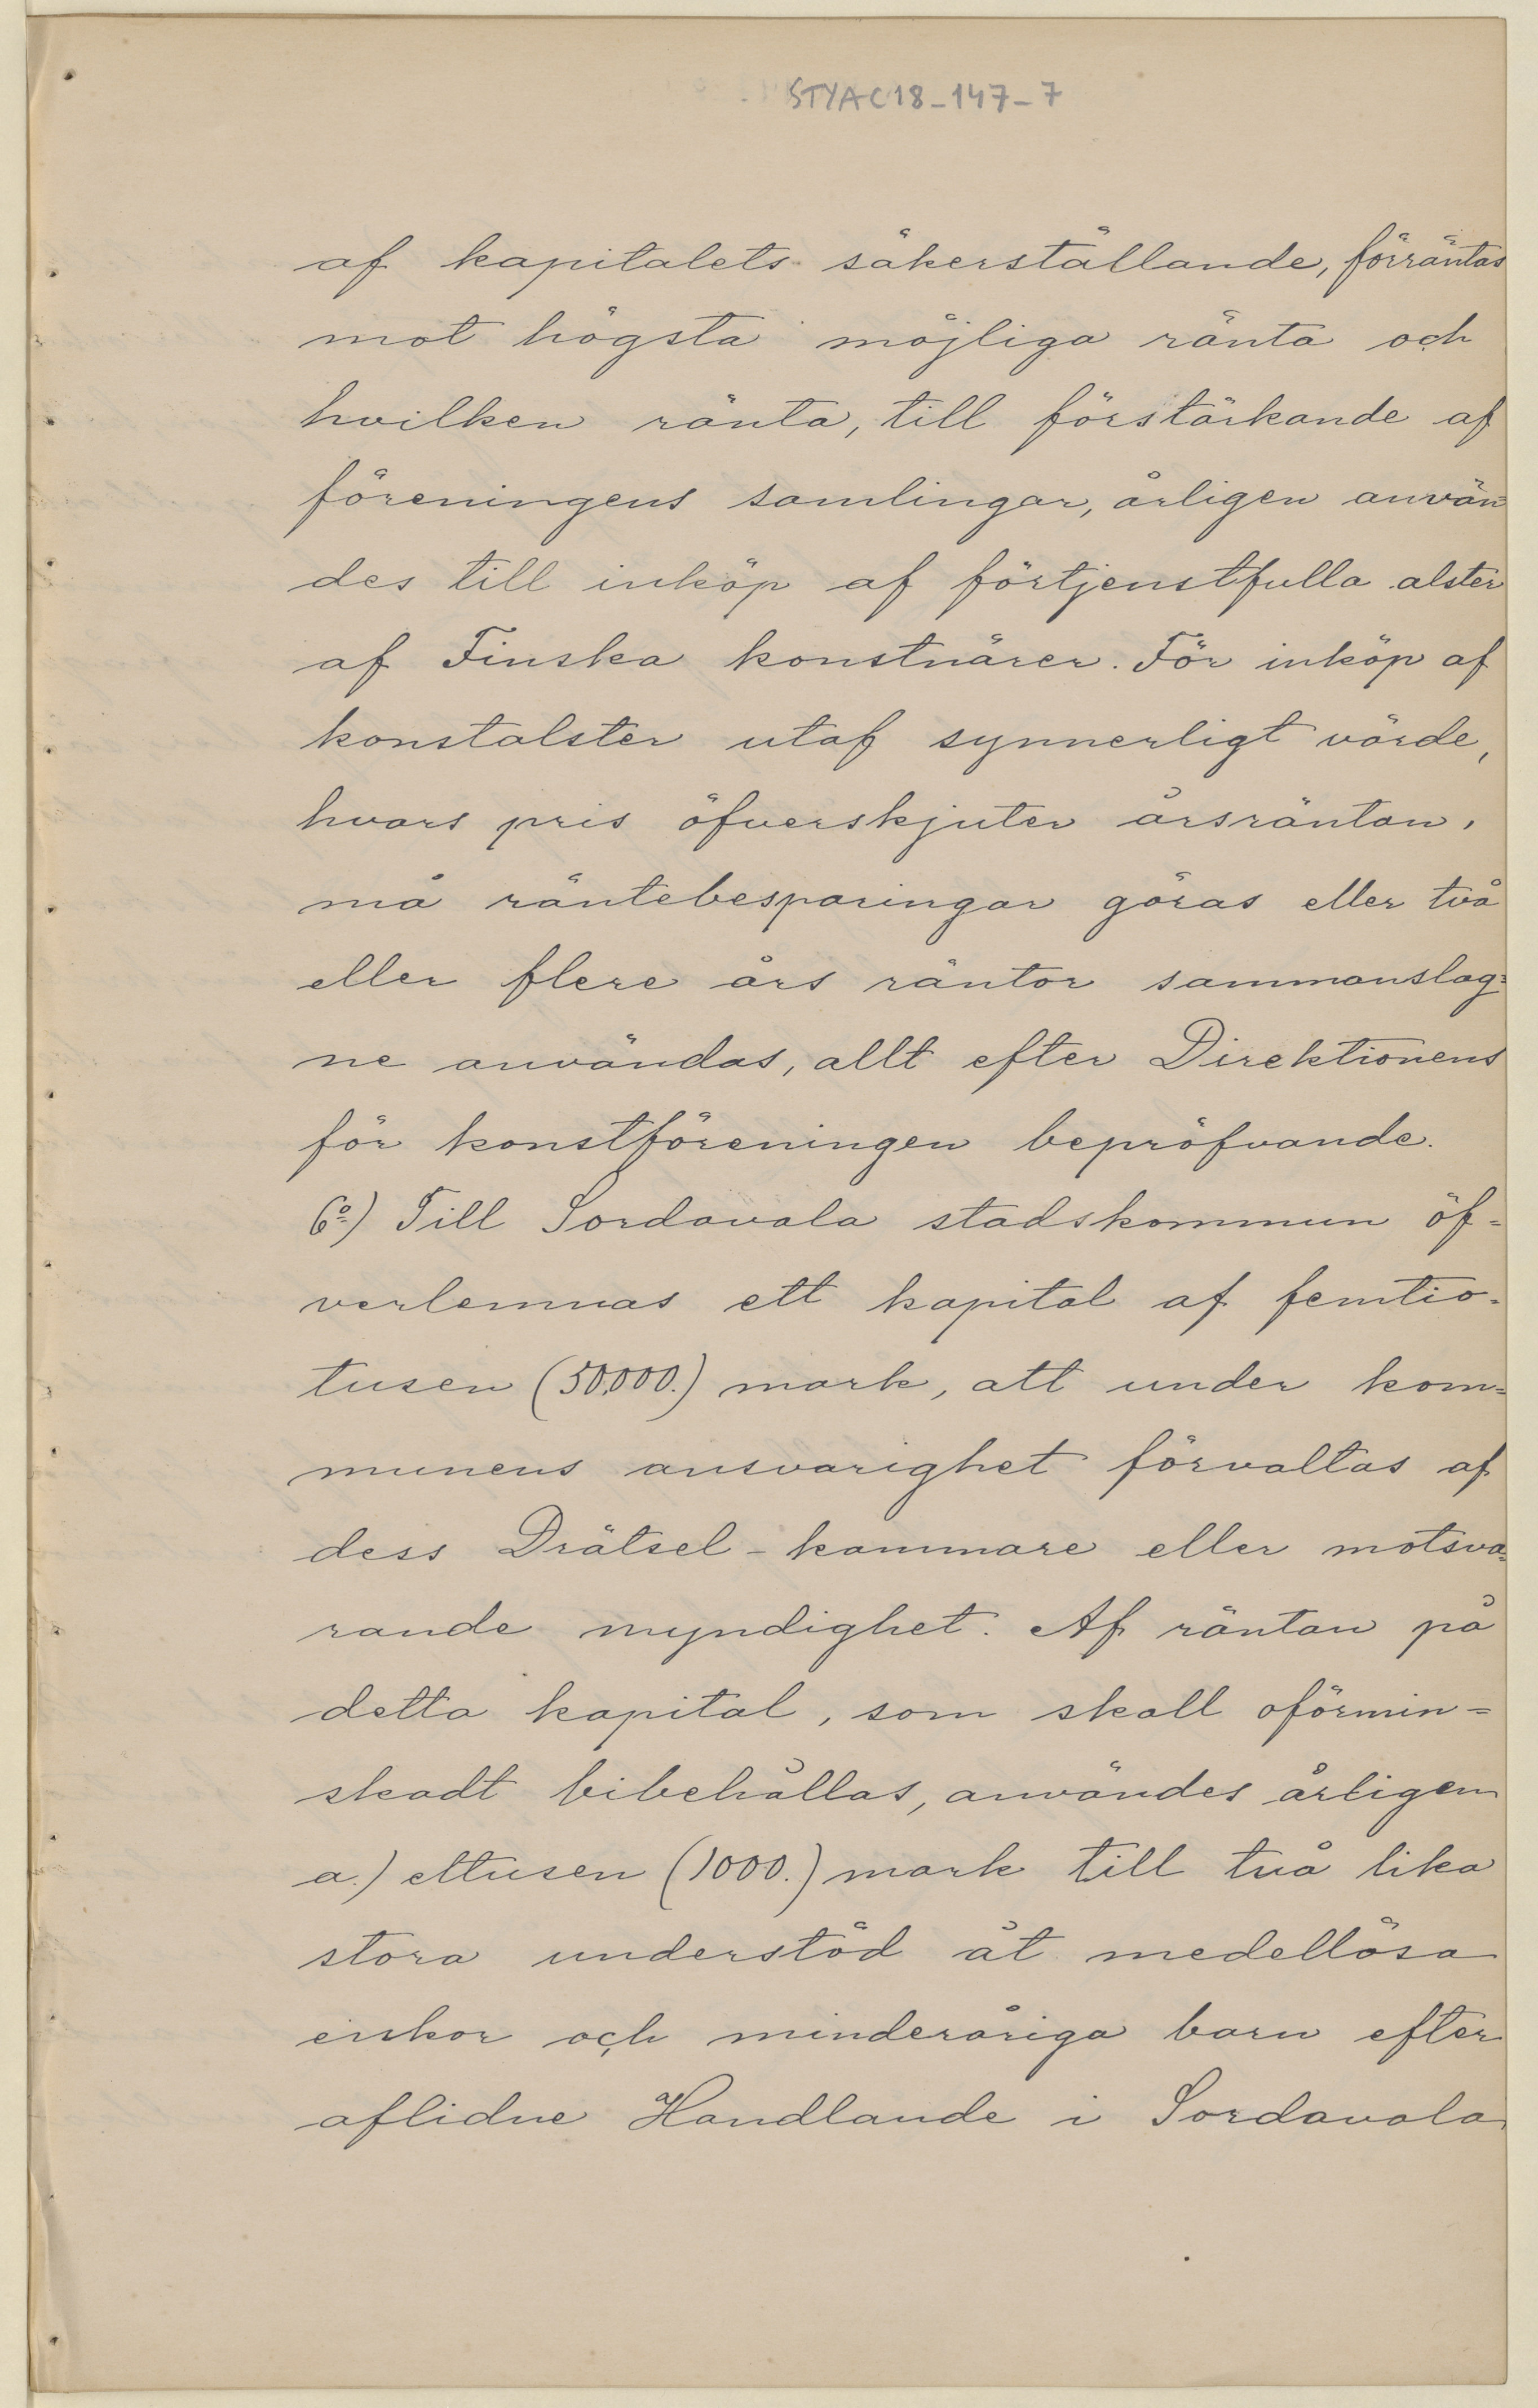 STYAC18_147_7
af kapitalets säkerställande, förräntas
mot högsta möjliga ränta och
hvilken ränta, till förstärkande af
föreningens samlingar, årligen använ=
des till inköp af förtjenstfulla alster
af Finska konstnärer. För inköp af
konstalster utaf synnerligt värde,
hvars pris öfverskjuter årsräntan,
må räntebesparingar göras eller två
eller flere års räntor sammanslag=
ne användas, allt efter Direktionens
för konstföreningen bepröfvande.
6º) Till Sordavala stadskommun öf=
verlemnas ett kapital af femtio=
tusen (50,000.) mark, att under kom=
munens ansvarighet förvaltas af
dess Drätsel-kammare eller motsva=
rande myndighet. Af räntan på
detta kapital, som skall oförmin=
skadt bibehållas, användes årligen
a.) ettusen (1000.) mark till två lika
stora understöd åt medellösa
enkor och minderåriga barn efter
aflidne Handlande i Sordavala